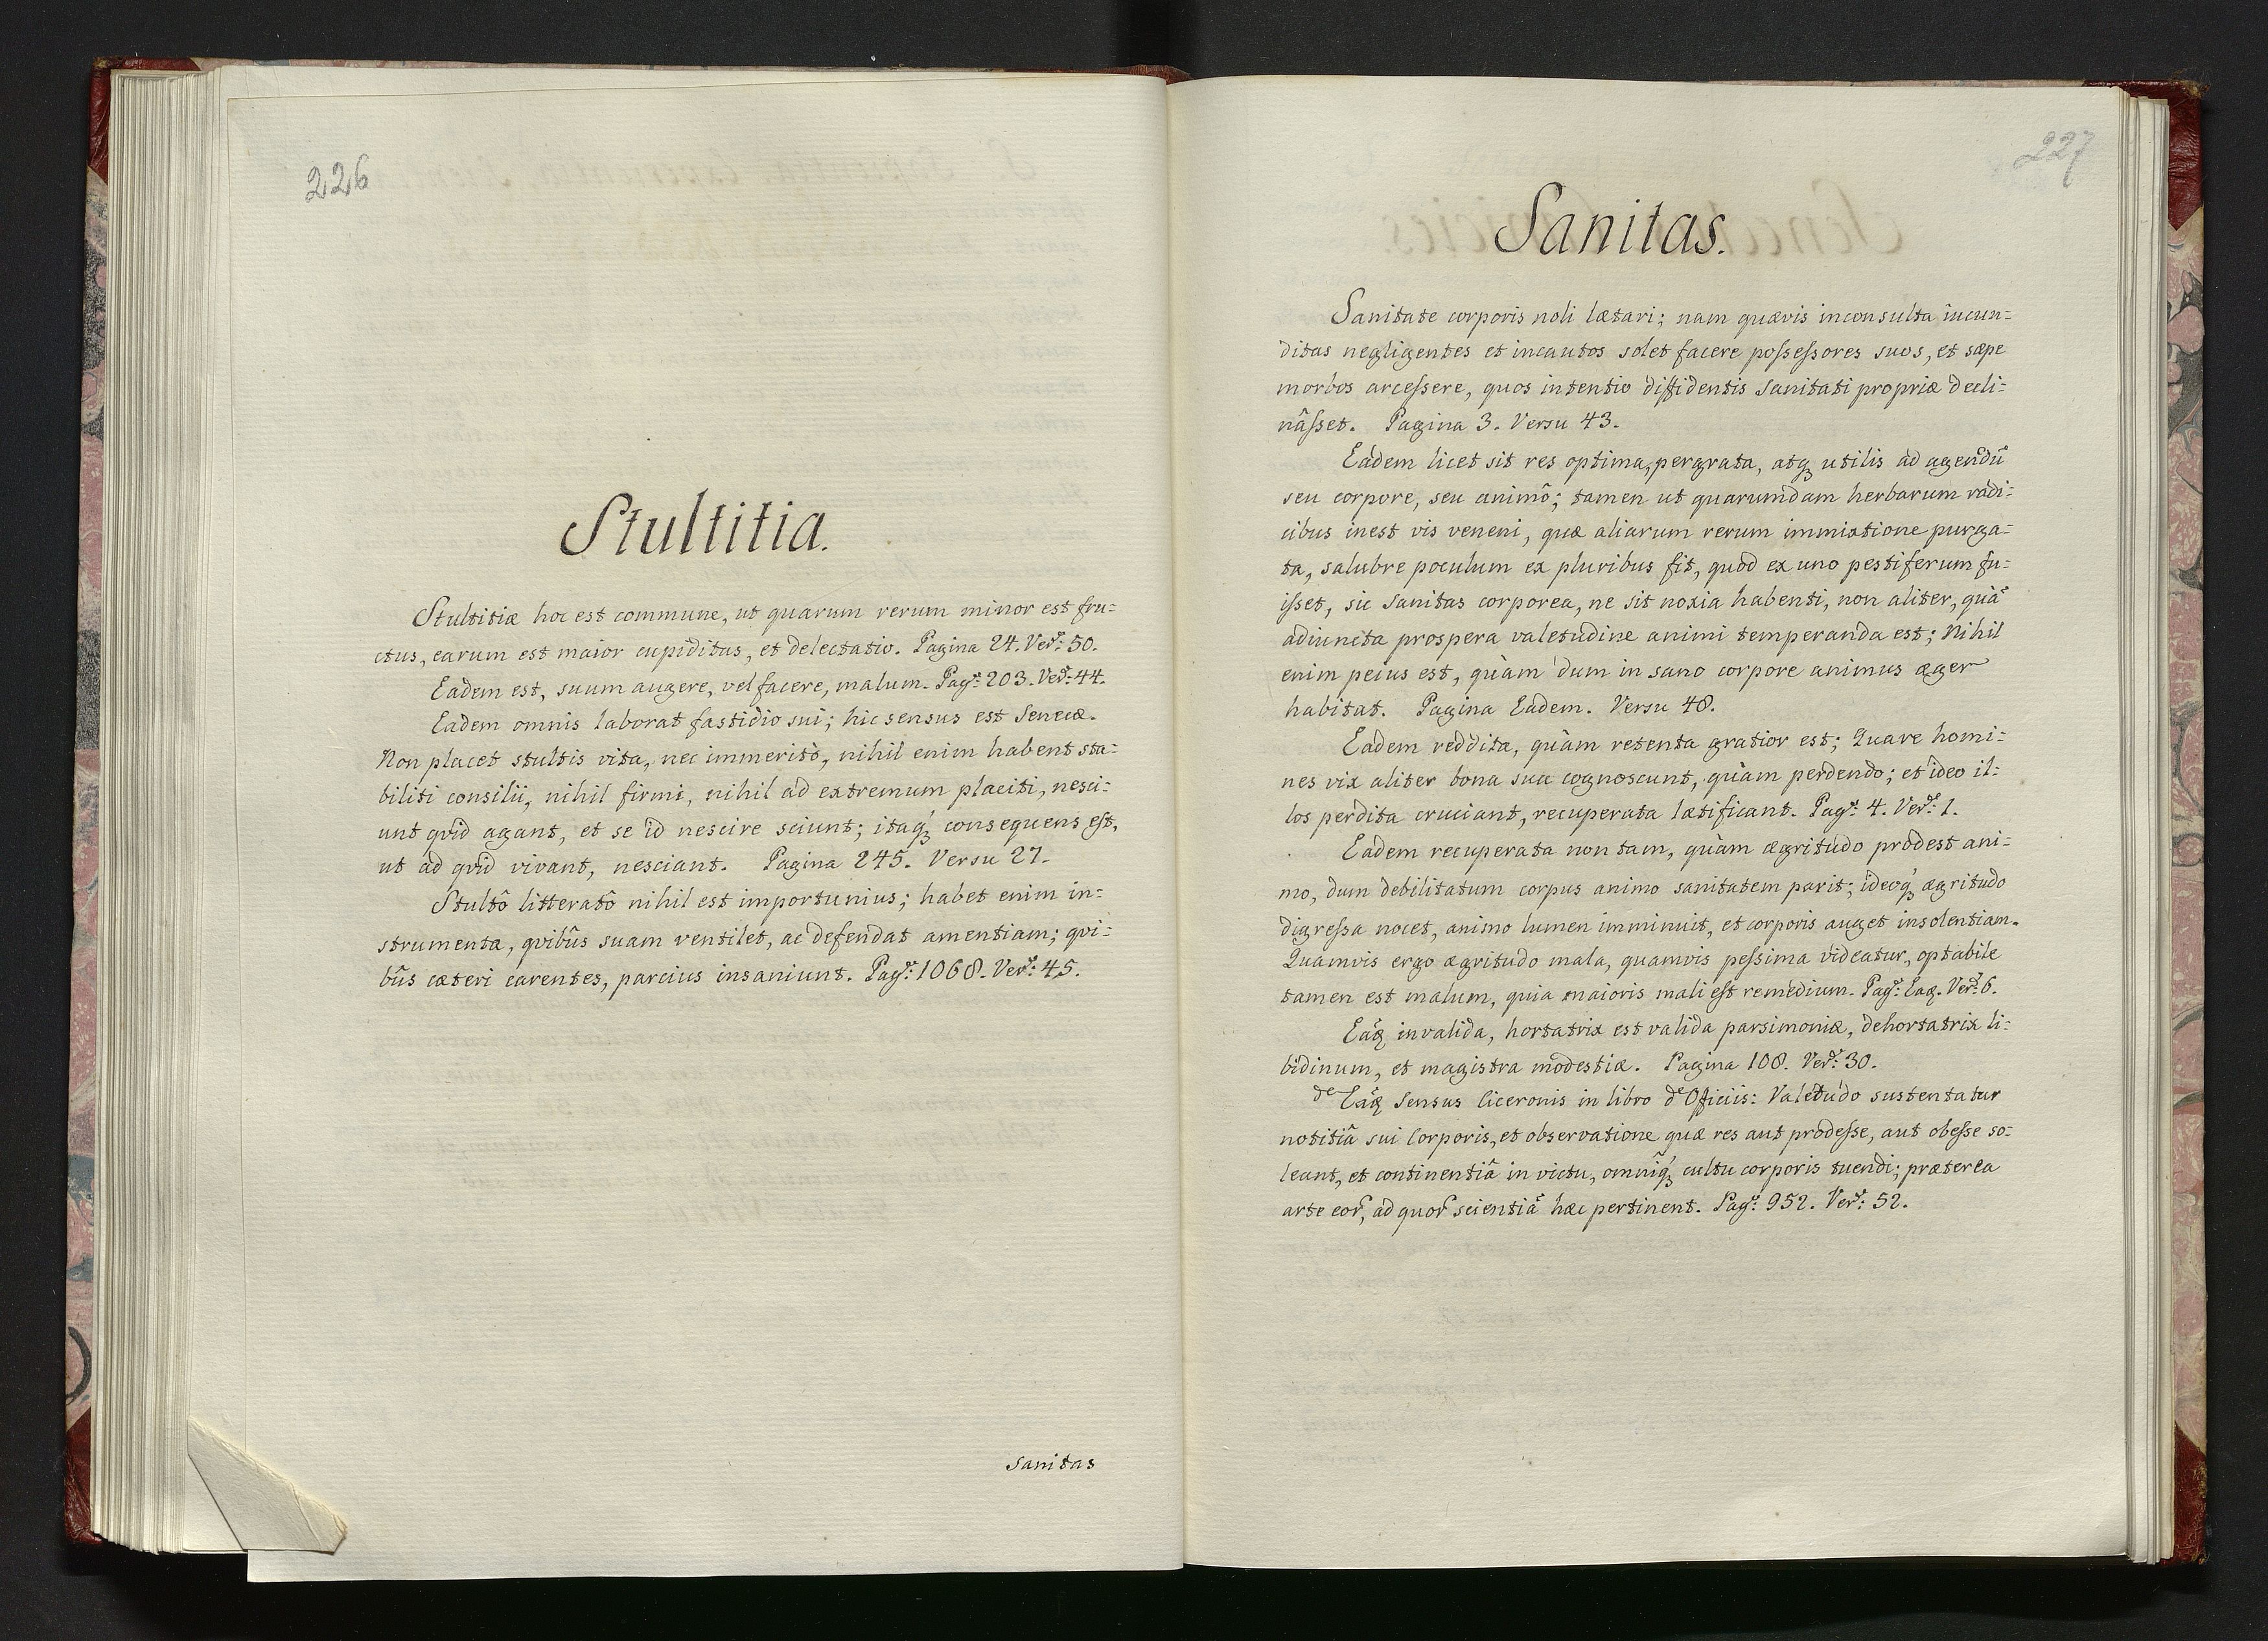 226
Stultitia.
Stultitiæ hoc est commune, ut quarum rerum minor est fru=
ctus, earum est maior cupiditas, et delectatio. Pagina 24. Verˢ: 50.
Eadem est, suum augere, vel facere, malum. Pagᵃ: 203. Verˢ: 44.
Eadem omnis laborat fastidio sui; hic sensus est Senecæ.
Non placet stultis vita, nec immeritò, nihil enim habent sta=
biliti consilii, nihil firmi, nihil ad extremum placiti, nesci=
unt qvid agant, et se id nescire sciunt; itaq́ꝫ consequens eſt,
ut ad qvid vivant, nesciant. Pagina 245. Versu 27.
Stultô litteratô nihil est importunius; habet enim in=
strumenta, qvibûs suam ventilet, ac defendat amentiam; qvi=
bûs cæteri carentes, parcius insaniunt. Pagᵃ: 1068. Verˢ: 45.
sanitas
227
Sanitas.
Sanitate corporis noli lætari; nam quævis inconsulta iucun=
ditas negligentes et incautos solet facere poſseſsores suos, et sæpe
morbos arceſsere, quos intentio diffidentis sanitati propriæ decli=
nâſset. Pagina 3. Versu 43.
Eadem licet sit res optima, pergrata, atqꝫ utilis ad agendū
seu corpore, seu animô; tamen ut quarumdam herbarum radi=
cibus inest vis veneni, quæ aliarum rerum immixtione purga=
ta, salubre poculum ex pluribus fit, quod ex uno pestiferum fu=
iſset, sic Sanitas corporea, ne sit noxia habenti, non aliter, quā
adiuncta prospera valetudine animi temperanda est; Nihil
enim peius est, quàm dum in sano corpore animus æger
habitat. Pagina Eadem. Versu 48.
Eadem reddita, quàm retenta gratior est; Quare homi=
nes vix aliter bona sua cognoscunt, quàm perdendo; et ideo il=
los perdita cruciant, recuperata lætificant. Pagᵃ: 4. Verˢ: 1.
Eadem recuperata non tam, quàm ægritudo prodest ani=
mo, dum debilitatum corpus animo sanitatem parit; ideoq́ꝫ ægritudo
digreſsa nocet, animo lumen imminuit, et corporis auget insolentiam.
Quamvis ergo ægritudo mala, quamvis peſsima videatur, optabile
tamen est malum, quia maioris mali eſt remedium. Pagᵃ: Eaꝫ. Verˢ: 6.
Eāꝫ invalida, hortatrix est valida parsimoniæ, dehortatrix li=
bidinum, et magistra modestiæ. Pagina 108. Verˢ: 30.
de Eāꝫ Sensus Ciceronis in libro de Officiis: Valetudo sustentatur
notitiâ sui Corporis, et observatione quæ res aut prodeſse, aut obeſse so=
leant, et continentiâ in victu, omniq́ꝫ cultu corporis tuendi; præterea
arte eor̄, ad quor̄ scientiā hæc pertinent. Pagᵃ: 952. Verˢ: 52.